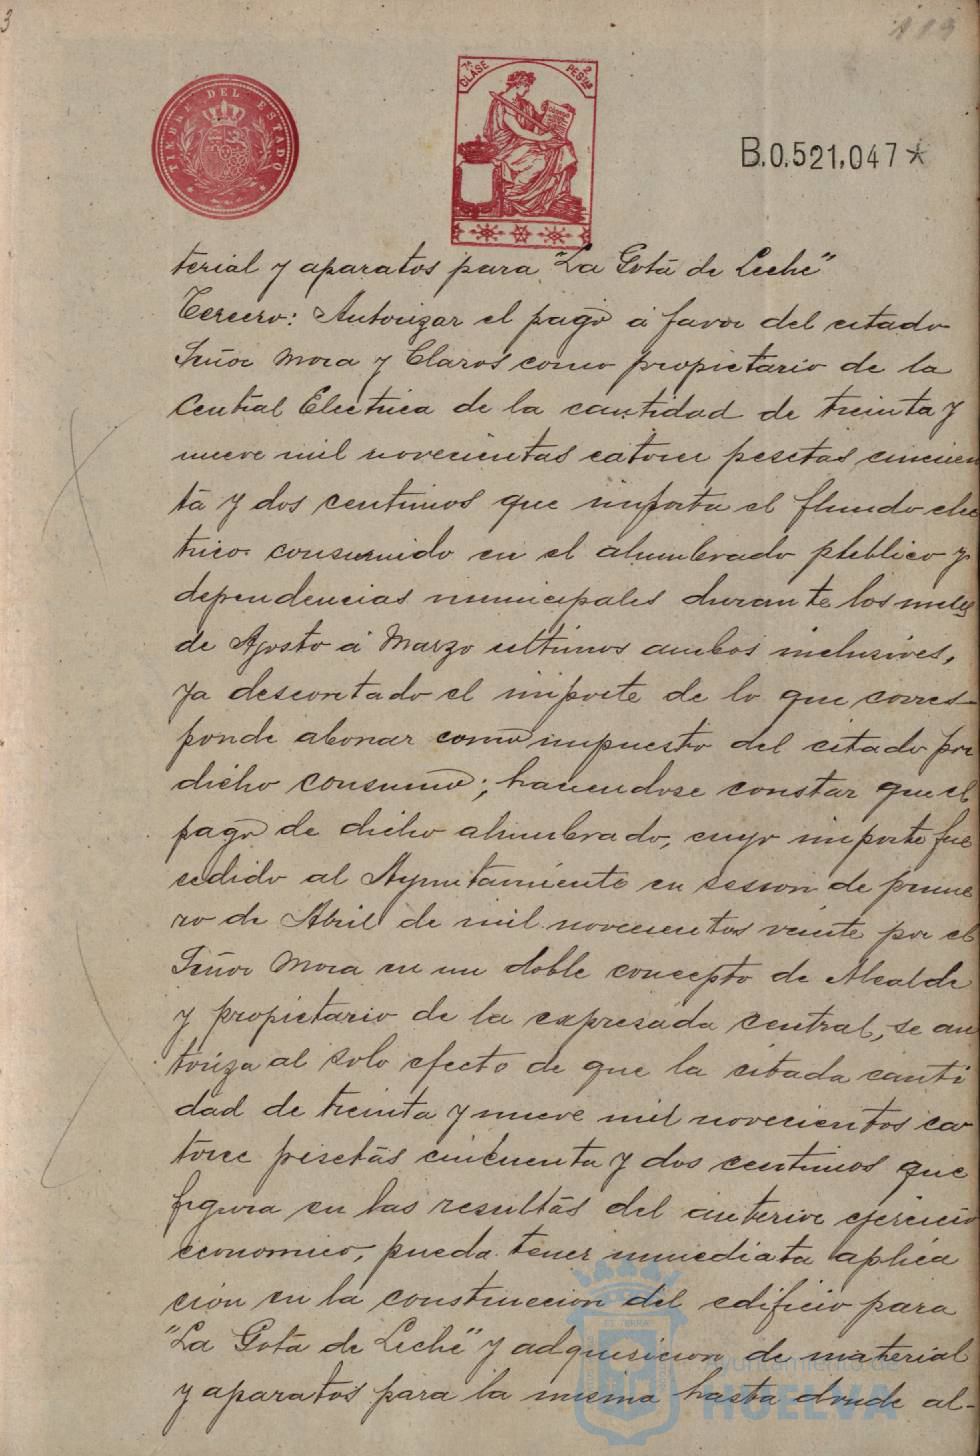 3
119
TIMBRE DEL ESTADO
7ª CLASE
2 PESTAS
B.0.521,047*
terial y aparatos para "La Gota de Leche"
Tercero: Autorizar el pago á favor del citado
Señor Mora y Claros como propietario de la
Central Electrica de la cantidad de treinta y
nueve mil novecientas catorce pesetas cincuen
ta y dos centimos que importa el fluido elec
trico consumido en el alumbrado publico y
dependencias municipales durante los meses
de Agosto á Marzo ultimos ambos inclusives,
ya descontado el importe de lo que corres-
ponde abonar como impuesto del citado por
dicho consumo; haciendose constar que el
pago de dicho alumbrado, cuyo importe fue
cedido al Ayuntamiento en sesion de prime
ro de Abril de mil novecientos veinte por el
Señor Mora en un doble concepto de Alcalde
y propietario de la expresada central, se au
toriza al solo efecto de que la citada canti
dad de treinta y nueve mil novecientos ca
torce pesetas cincuenta y dos centimos que
figura en las resultas del anterior ejercicio
economico, pueda tener inmediata aplica
cion en la construccion del edificio para
"La Gota de Leche" y adquisicion de material
y aparatos para la misma hasta donde al-
Ayuntamiento de
HUELVA